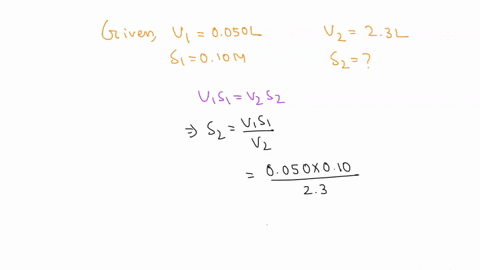 Given, V₁ = 0.050L V₂ = 2.3L
S₁ = 0.10M S₂ = ?
V₁S₁ = V₂S₂
⇒ S₂ = V₁S₁ / V₂
= 0.050 × 0.10 / 2.3